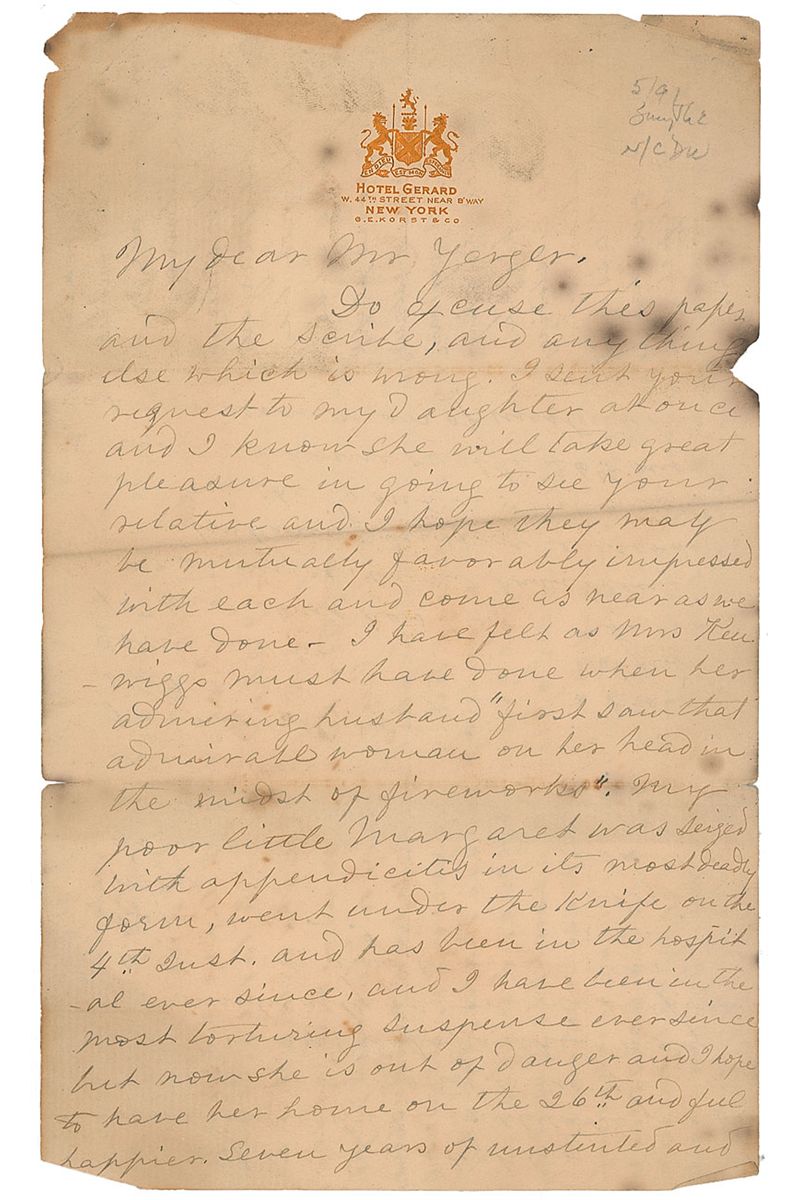 5/9/
Smythe
N/C DW
EN DIEU EST MON
HOTEL GERARD
W. 44TH STREET NEAR B'WAY
NEW YORK
G.E. KORST & CO
My dear Mr Yerger,
Do excuse this paper
and the scribe, and anything
else which is wrong. I sent your
request to my daughter at once
and I know she will take great
pleasure in going to see your
relative and I hope they may
be mutually favorably impressed
with each and come as near as we
have done - I have felt as Mrs Ken
- wiggs must have done when her
admiring husband "first saw that
admirable woman on her head in
the midst of fireworks". My
poor little Margaret was seized
with appendicitis in its most deadly
form, went under the knife on the
4th Inst. and has been in the hospit
- al ever since, and I have been in the
most torturing suspense ever since
but now she is out of danger and I hope
to have her home on the 26th and feel
happier. Seven years of unstinted and